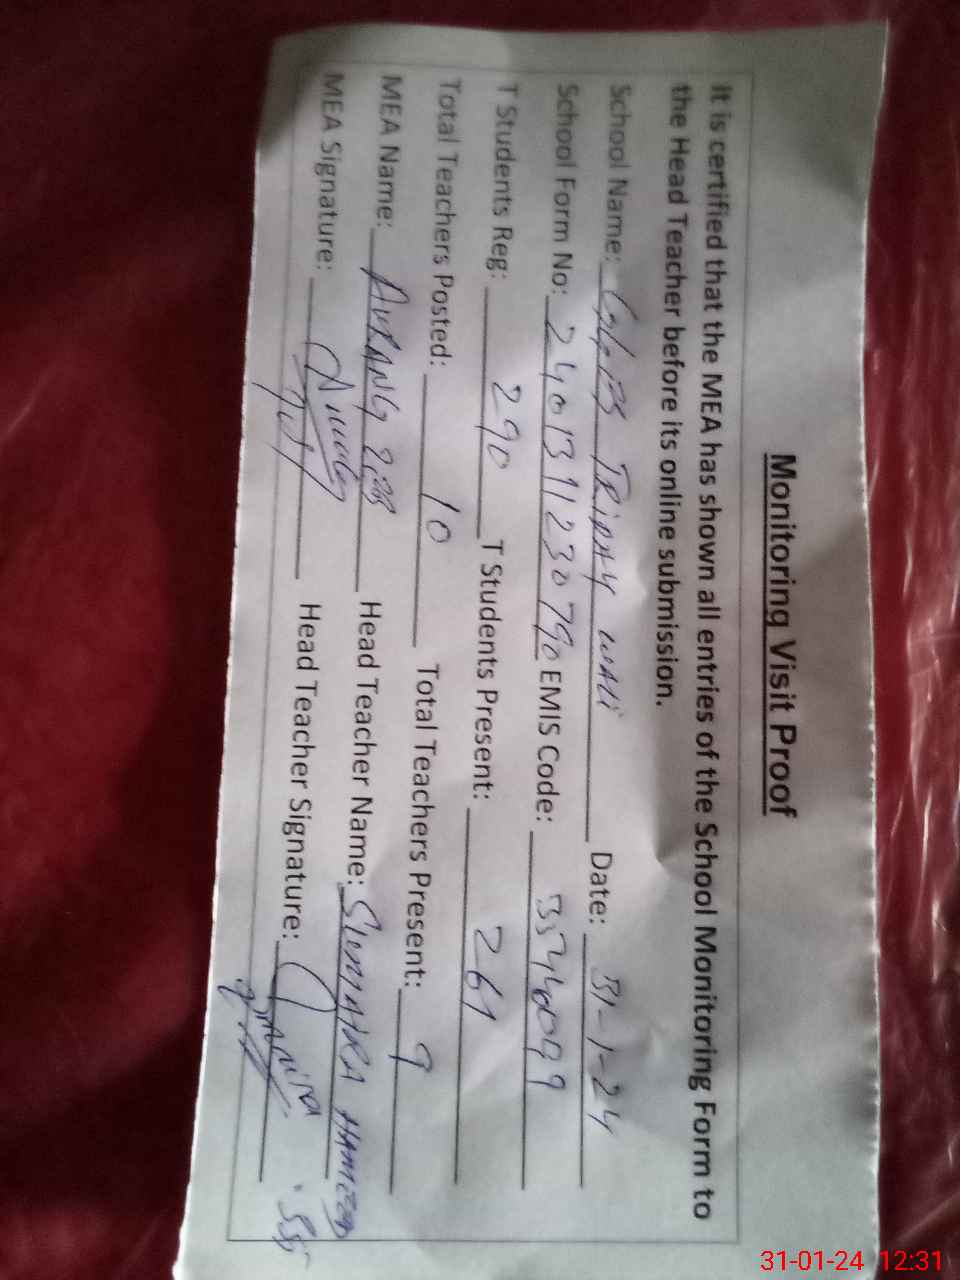 Monitoring Visit Proof
It is certified that the MEA has shown all entries of the School Monitoring Form to
the Head Teacher before its online submission.
School Name: TRIPAY WALI Date: 31-1-24
School Form No: 2401311230790 EMIS Code:
T Students Reg: 290 T Students Present: 261
Total Teachers Posted: 10 Total Teachers Present: 9
MEA Name: AURANG Head Teacher Name: HAMEED
MEA Signature: Head Teacher Signature:
31-01-24 12:31